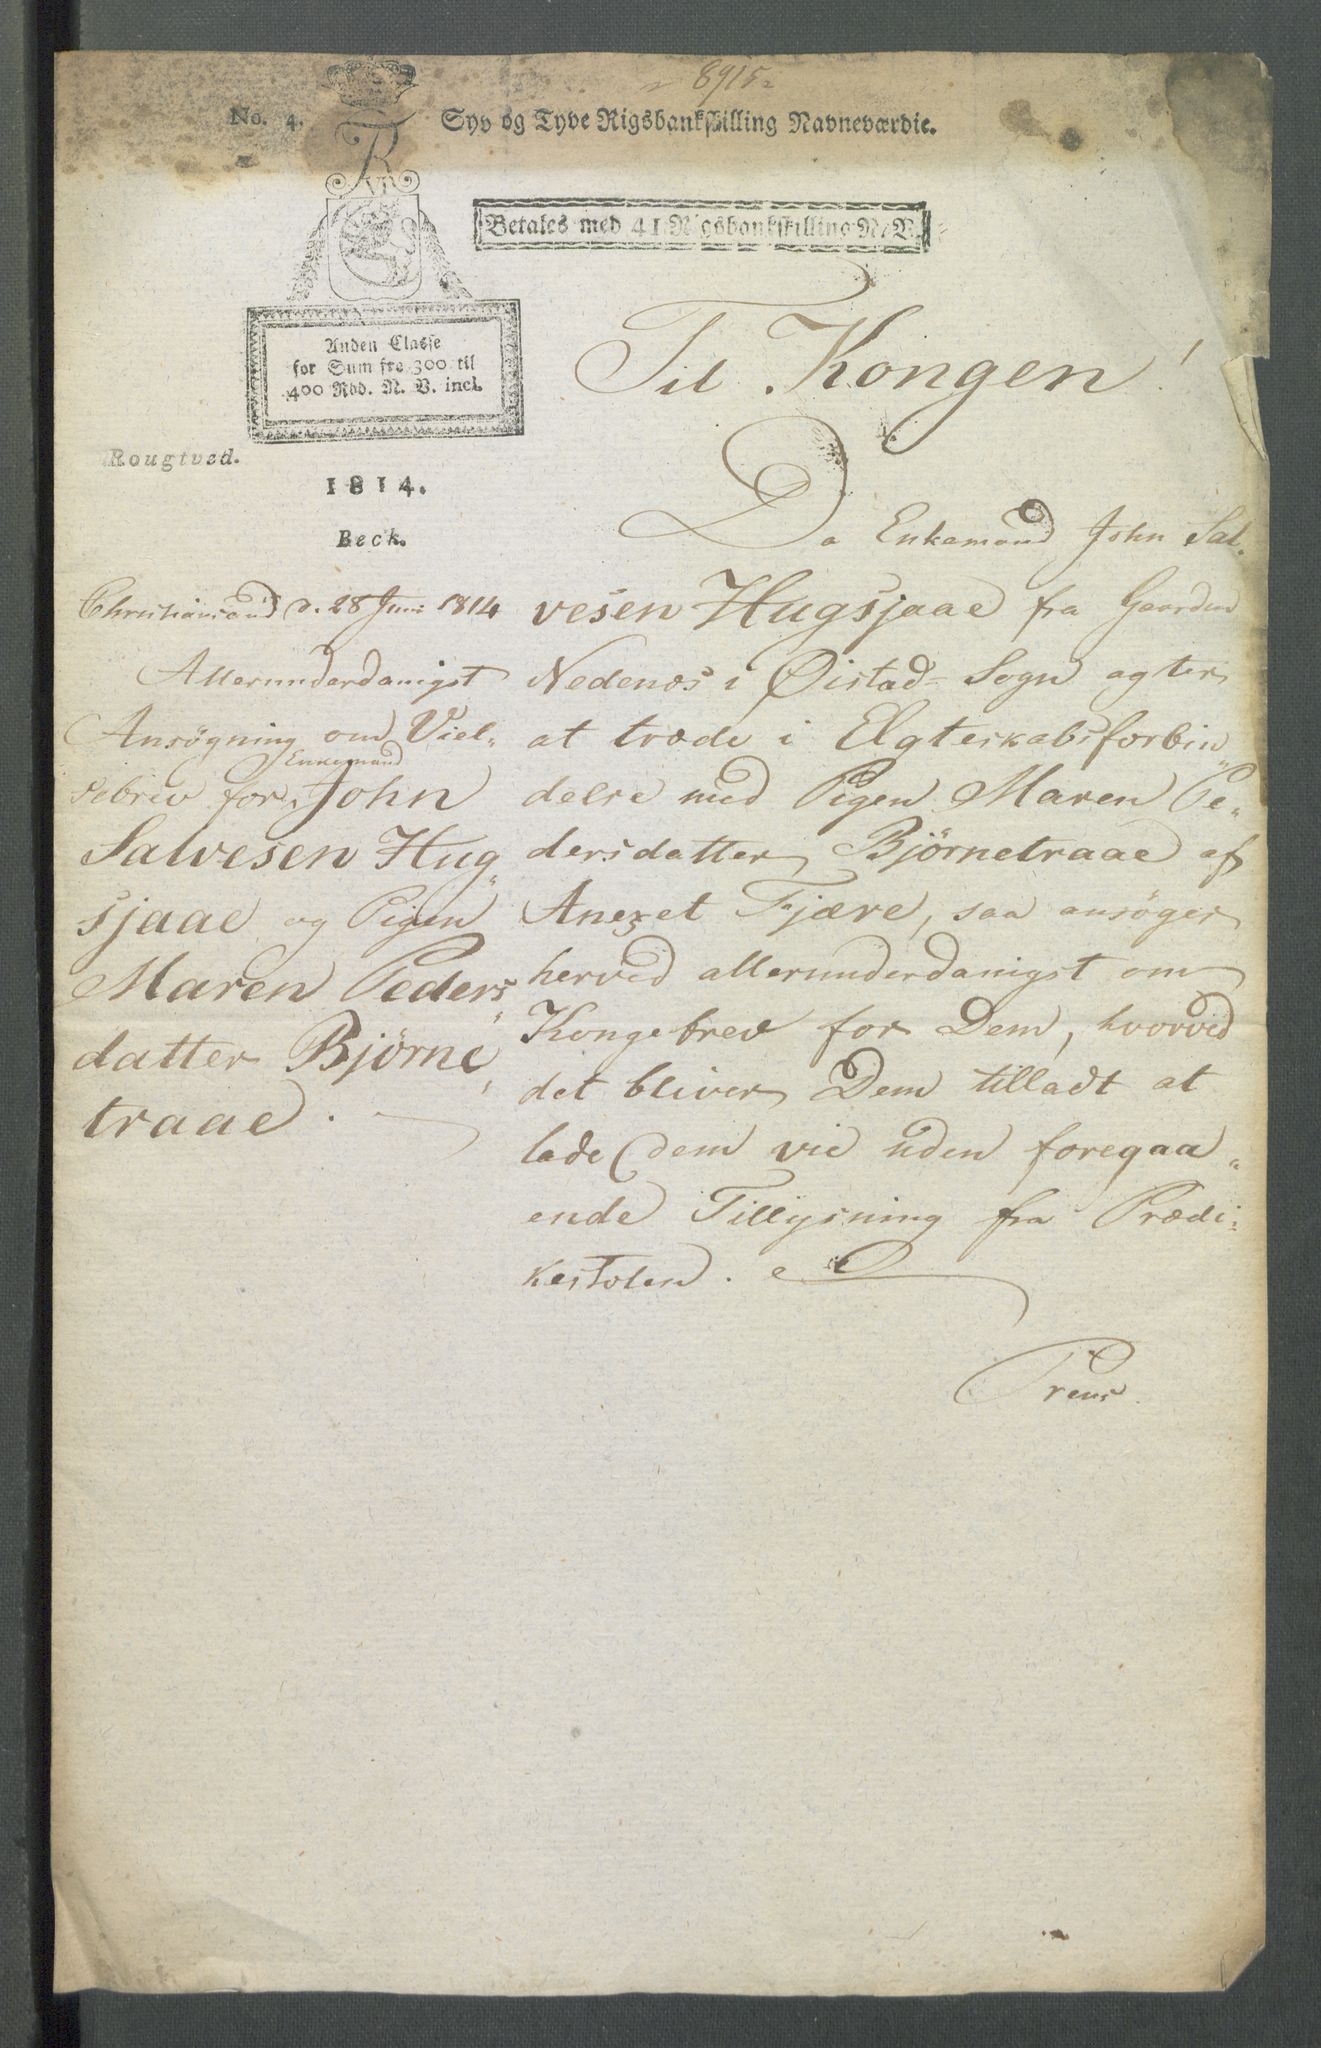 8915
No. 4.
Syv og Tyve Rigsbankskilling Navneværdie.
R
VI
Betales med 41 Rigsbankskilling N. V.
Anden Classe
for Sum fra 300 til
400 Rbd. N. V. incl.
Rougtved.
1814.
Beck.
Christiansand d. 28 Juni 1814
Allerunderdanigst
Ansøgning om Viel„
sebrev for Enkemand John
Salvesen Hug„
sjaae og Pigen
Maren Peders„
datter Bjørne„
traae.
Til Kongen!
Da Enkemand John Sal„
vesen Hugsjaae fra Gaarden
Nedenes i Øistad Sogn agter
at træde i Ægteskabsforbin„
delse med Pigen Maren Pe„
dersdatter Bjørnetraae af
Anexet Fjære, saa ansøges
herved allerunderdanigst om
Kongebrev for Dem, hvorved
det bliver Dem tilladt at
lade dem vie uden foregaa„
ende Tillysning fra Prædi„
kestolen.